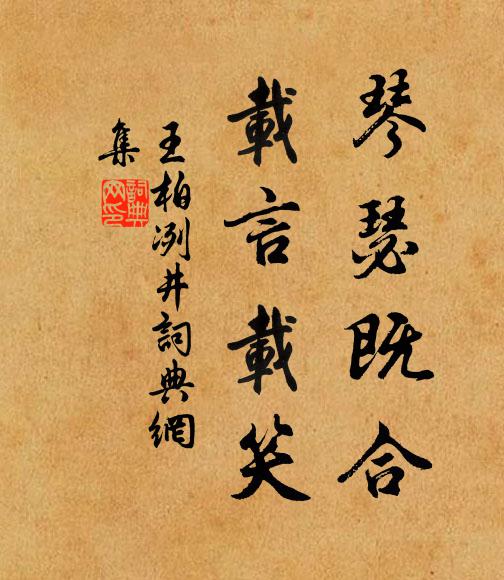 琴瑟既合
載言載笑
王柏冽井詞典網
集
詞典
网印